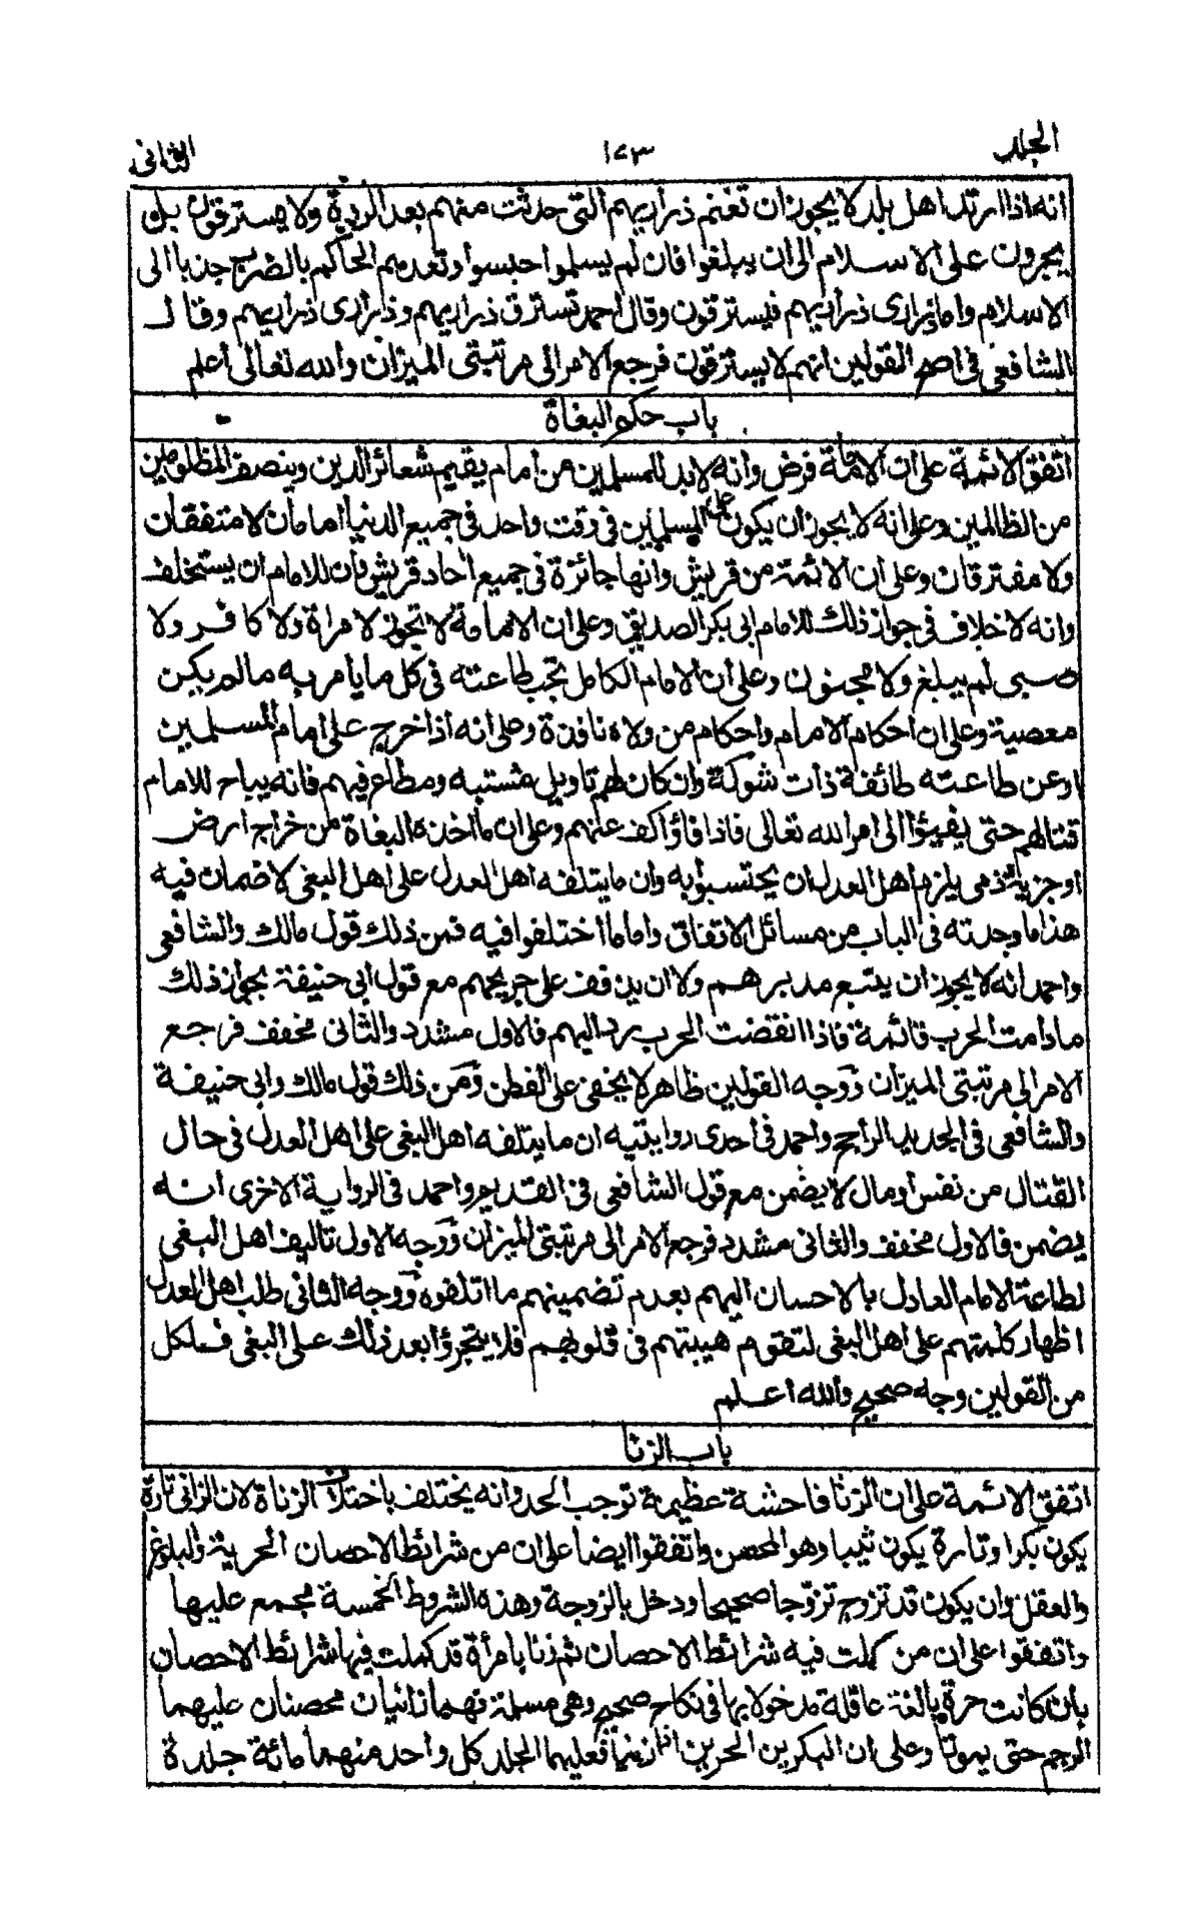 الجلد ١٧٣ الثانى
انه اذا ارتد اهل بلد لا يجوز ان تغنم ذراريهم التى حدثت منهم بعد الردة ولا يسترقون بل
يجبرون على الاسلام الى ان يبلغوا فان لم يسلموا حبسوا وتعدهم الحاكم بالضرب جذبا الى
الاسلام واما ذرارى ذراريهم فيسترقون وقال احمد تسترق ذراريهم وذرارى ذراريهم وقال
الشافعى فى اصح القولين انهم لا يسترقون فرجع الامر الى مرتبتى الميزان والله تعالى أعلم
باب حكم البغاة
اتفق الائمة على ان الامامة فرض وانه لا بد للمسلمين من امام يقيم شعائر الدين وينصف المظلومين
من الظالمين وعلى انه لا يجوز ان يكون على المسلمين فى وقت واحد فى جميع الدنيا امامان لا متفقان
ولا مفترقان وعلى ان الائمة من قريش وانها جائزة فى جميع احاد قريش وان للامام ان يستخلف
وانه لا خلاف فى جواز ذلك للامام ابى بكر الصديق وعلى ان الامامة لا تجوز لامراة ولا كافر ولا
صبى لم يبلغ ولا مجنون وعلى ان الامام الكامل تجب طاعته فى كل ما يأمر به ما لم يكن
معصية وعلى ان احكام الامام واحكام من ولاه نافذة وعلى انه اذا خرج على امام المسلمين
او عن طاعته طائفة ذات شوكة وان كان لهم تاويل مشتبه ومطاع فيهم فانه يباح للامام
قتالهم حتى يفيؤا الى امر الله تعالى فاذا فاؤا كف عنهم وعلى ان ما اخذه البغاة من خراج ارض
او جزية ذمى يلزم اهل العدل ان يحتسبوا به وان ما يتلفه اهل العدل على اهل البغى لا ضمان فيه
هذا ما وجدته فى الباب من مسائل الاتفاق واما ما اختلفوا فيه فمن ذلك قول مالك والشافعى
واحمد انه لا يجوز ان يتبع مدبرهم ولا ان يذفف على جريحهم مع قول ابى حنيفة بجواز ذلك
ما دامت الحرب قائمة فاذا انقضت الحرب يرد اليهم فالاول مشدد والثانى مخفف فرجع
الامر الى مرتبتى الميزان ووجه القولين ظاهر لا يخفى على الفطن ومن ذلك قول مالك وابى حنيفة
والشافعى فى الجديد الراجح واحمد فى احدى روايتيه ان ما يتلفه اهل البغى على اهل العدل فى حال
القتال من نفس او مال لا يضمن مع قول الشافعى فى القديم واحمد فى الرواية الاخرى انه
يضمن فالاول مخفف والثانى مشدد فرجع الامر الى مرتبتى الميزان ووجه الاول تاليف اهل البغى
لطاعة الامام العادل بالاحسان اليهم بعدم تضمينهم ما اتلفوه ووجه الثانى طلب اهل العدل
اظهار كلمتهم على اهل البغى لتقوم هيبتهم فى قلوبهم فلا يتجرؤا بعد ذلك على البغى فلكل
من القولين وجه صحيح والله اعلم
باب الزنا
اتفق الائمة على ان الزنا فاحشة عظيمة توجب الحد وانه يختلف باختلاف الزناة لان الزانى تارة
يكون بكرا وتارة يكون ثيبا وهو المحصن واتفقوا ايضا على ان من شرائط الاحصان الحرية والبلوغ
والعقل وان يكون قد تزوج تزوجا صحيحا ودخل بالزوجة وهذه الشروط الخمسة مجمع عليها
واتفقوا على ان من كملت فيه شرائط الاحصان ثم زنا بامرأة قد كملت فيها شرائط الاحصان
بان كانت حرة بالغة عاقلة مدخولا بها فى نكاح صحيح وهى مسلمة فهما زانيان محصنان عليهما
الرجم حتى يموتا وعلى ان البكرين الحرين اذا زنيا فعليهما الجلد كل واحد منهما مائة جلدة